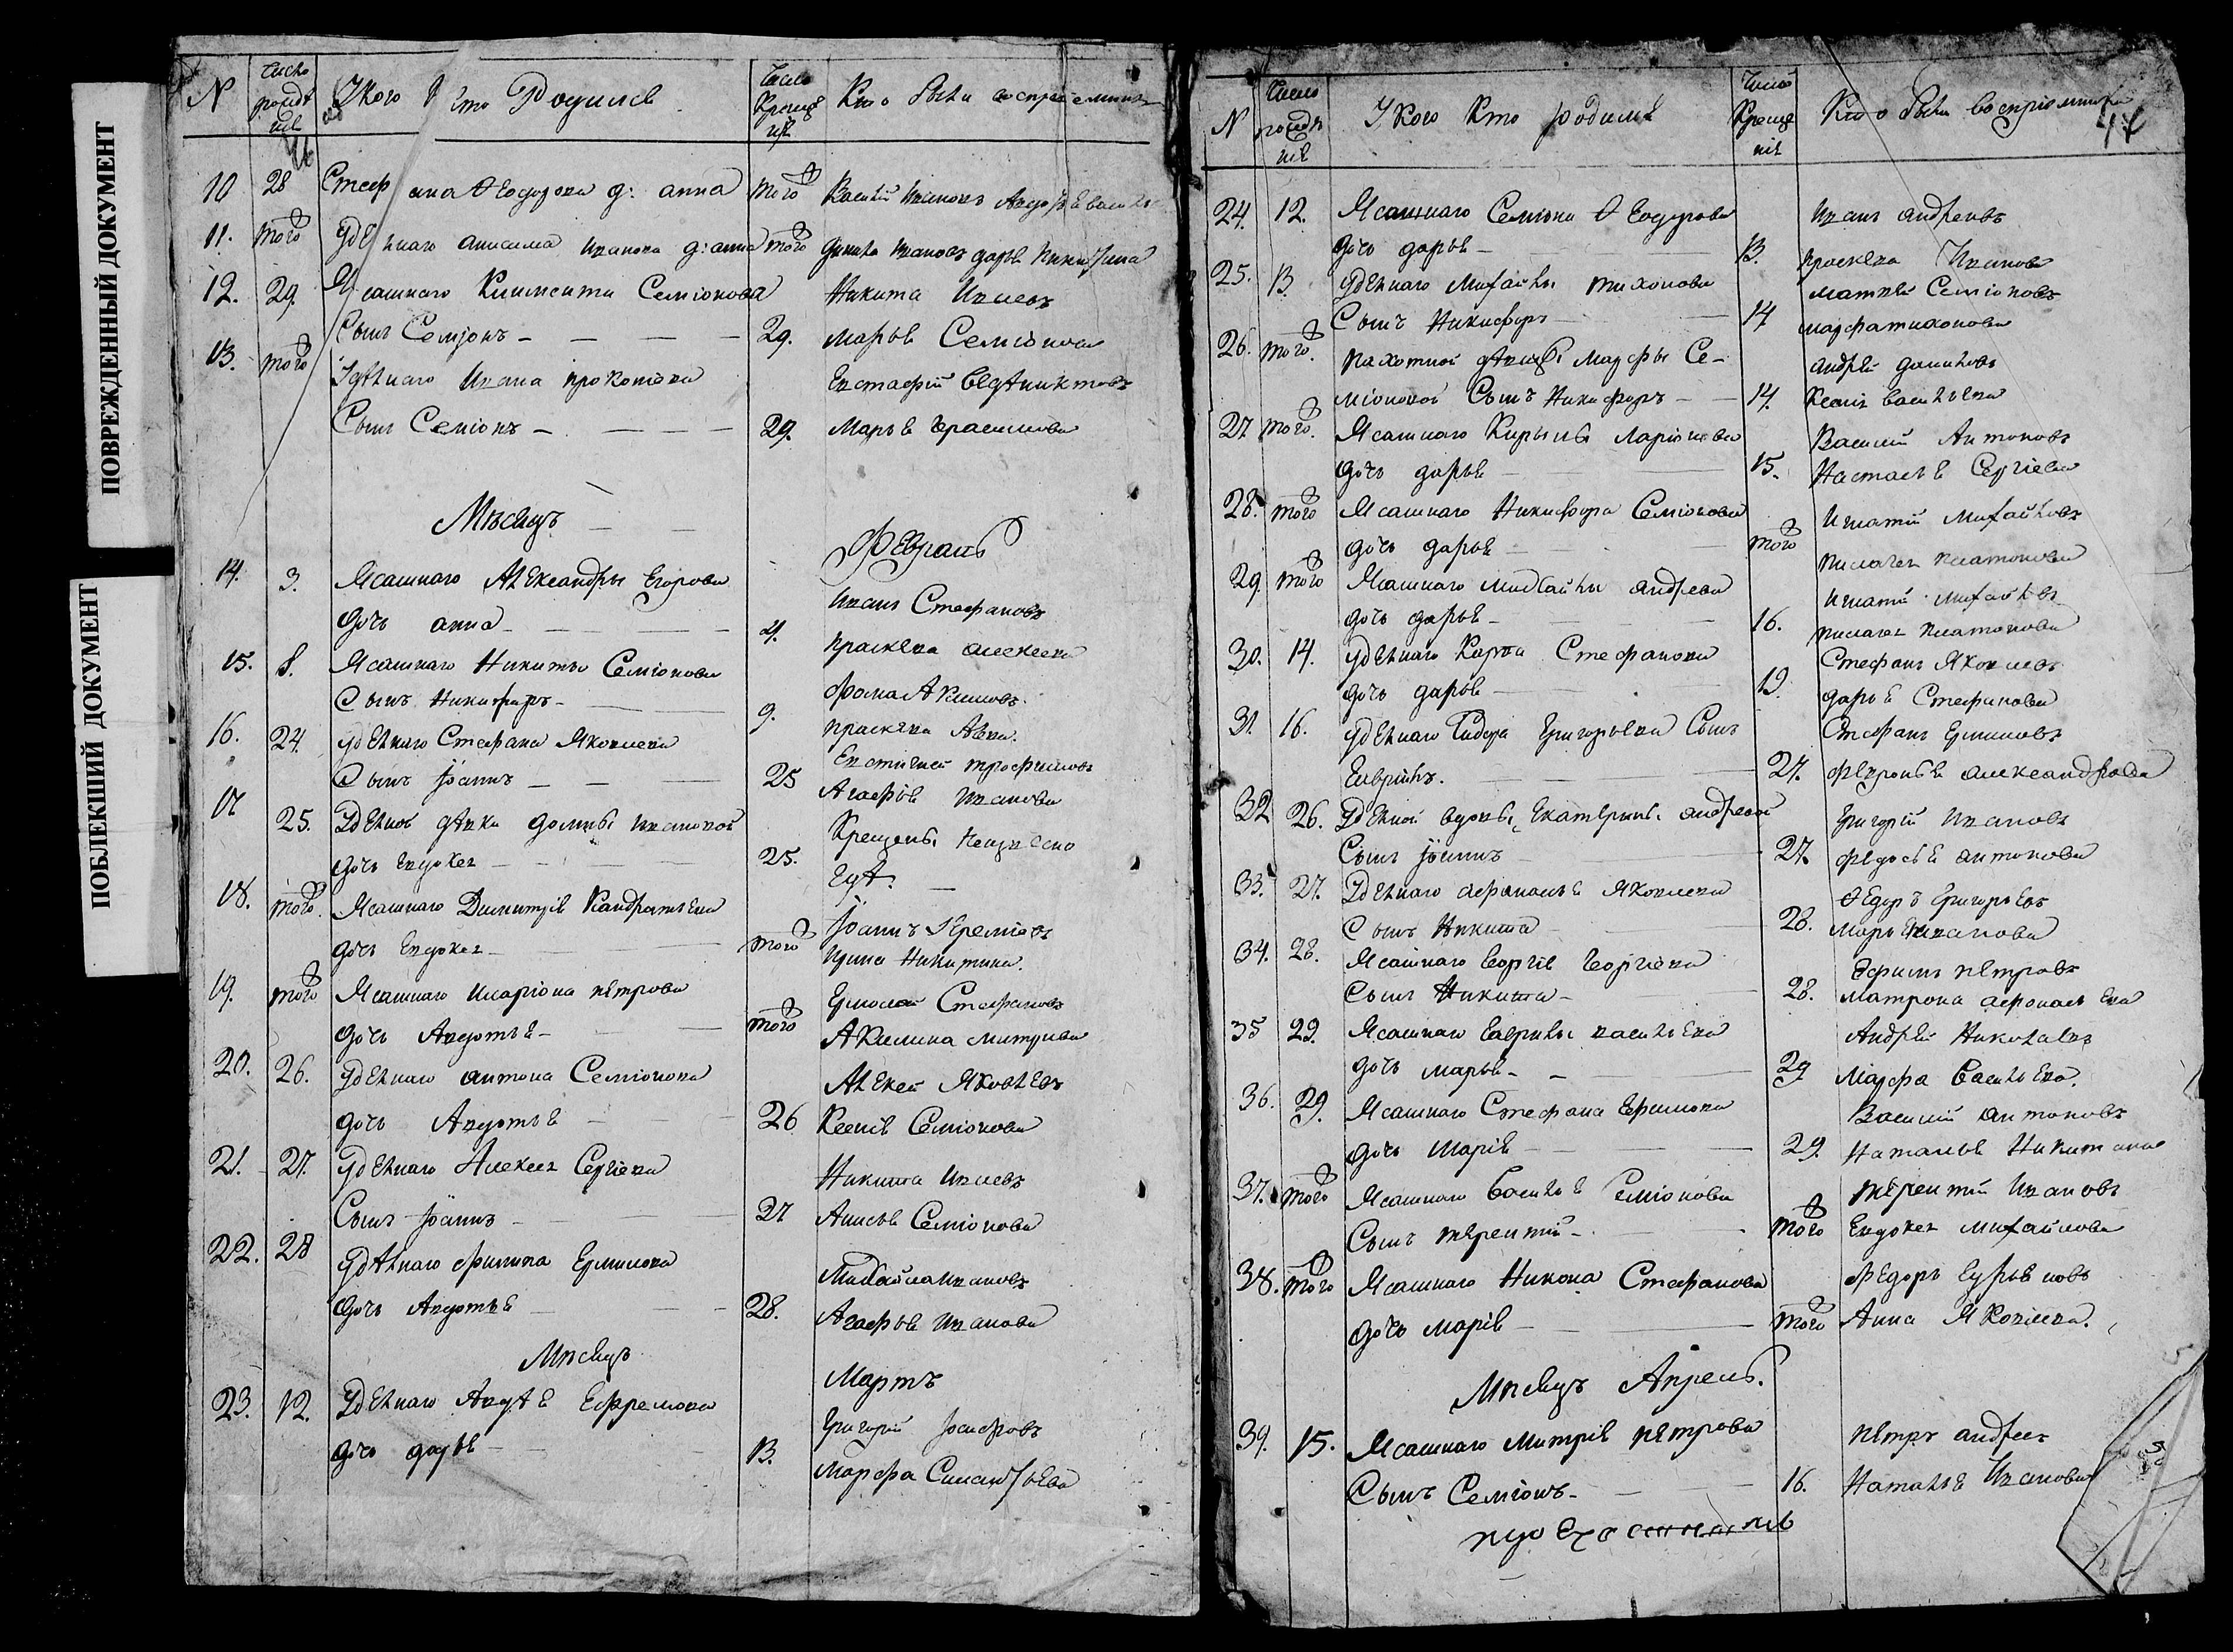 ПОВРЕЖДЕННЫЙ ДОКУМЕНТ
ПОБЛЕКШИЙ ДОКУМЕНТ
N Число рождения У кого кто Родился Число Крещения Кто были восприемники
10 28 Стефана Ѳеодорова д: анна того Василий Ивановъ
11. того Удѣлнаго анисима иванова д: анна того данила ивановъ дарья
12. 29. Ясашнаго Климента Семіонова Никита
Сынъ Семіонъ 29. марья Семіонова
13. того Удѣлнаго Ивана прокопіева Евстафий
Сынъ Семіонъ 29. Марья Герасимова
Мѣсяцъ Февраль
14. 3. Ясашнаго Александры Егорова Иванъ Стефановъ
дочь анна 4. прасковя алексеева
15. 8. Ясашнаго Никиты Семіонова фома Акимовъ
Сынъ Никифоръ 9. прасковя
16. 24. удѣлнаго Стефана Яковлева Евстигней трофимовъ
Сынъ Іоаннъ 25 Агафья иванова
17 25. Удѣлной дѣвки домны ивановой Крещены
дочь Евдокея 25.
18. того. Ясашнаго Димитрія Кандратьева Іоаннъ
дочь Евдокея того Ирина Никитина.
19. того Ясашнаго иларіона петрова Ермолай Стефановъ
дочь Авдотья того Акилина митриева
20. 26. удѣлнаго антона Семіонова Алексей Яковлевъ
дочь Авдотья 26 Ксения Семіонова
21. 27. удѣлнаго Алексея Сергіева Никита
Сынъ Іоаннъ 27 Анисья Семіонова
22. 28 Удѣлнаго филипа Ермилова Михайла ивановъ
дочь Авдотья 28. Агафья иванова
Мѣсяцъ Мартъ
23. 12. Удѣлнаго Авдѣя Ефремова Григорий Іосифовъ
дочь дарья 13. Марфа
N Число рождения У кого Кто родился Число Крещения Кто были восприемники
24. 12. Ясашнаго Семіона Ѳеодорова Иванъ андреевъ
дочь дарья 13. прасковя Иванова
25. 13. удѣлнаго Михайлы тихонова матвей Семіоновъ
Сынъ Никифоръ 14 марфа тихонова
26. того. пахотной дѣвицы Марфы Се- андрей даниловъ
міоновой Сынъ Никифоръ 14. Ксения васильева
27 того. Ясашнаго Кирылы ларіонова Василий Антоновъ
дочь дарья 15. Настасья Сергіева
28. того Ясашнаго Никифора Семіонова Игнатий Михайловъ
дочь дарья того пелагея платонова
29. того Ясашнаго михайлы андреева Игнатий михайловъ
дочь дарья 16. пелагея платонова
30. 14. удѣлнаго Карпа Стефанова Стефанъ Яковлевъ
дочь дарья 19. дарья Стефанова
31. 16. удѣлнаго Сидора Григорьева Сынъ Стефанъ Ермиловъ
Гаврилъ. 27. февронья александрова
32 26. Удѣлной вдовы Екатерины андреевой Григорий Ивановъ
Сынъ Іоаннъ 27. федосья антонова
33. 27. Удѣлнаго афанасья Яковлева Ѳедоръ Григорьевъ
Сынъ Никита 28. Марья иванова
34. 28. Ясашнаго Георгія Георгіева Ефимъ петровъ
Сынъ Никита 28. матрона афонасьева
35 29. Ясашнаго Гаврилы васильева Андрей Николаевъ
дочь марья 29 Марфа Васильева.
36. 29. Ясашнаго Стефана Ефимова Василий антоновъ
дочь Марія 29. Наталья Никитина
37. того Ясашнаго Василья Семіонова терентий ивановъ
Сынъ терентий того Евдокея михайлова
38. того Ясашнаго Никона Стефанова Федоръ
дочь марія того Анна Яковлева.
Мѣсяцъ Апрель.
39. 15. Ясашнаго Митрія петрова петръ андреевъ
Сынъ Семіонъ 16. Наталья Иванова